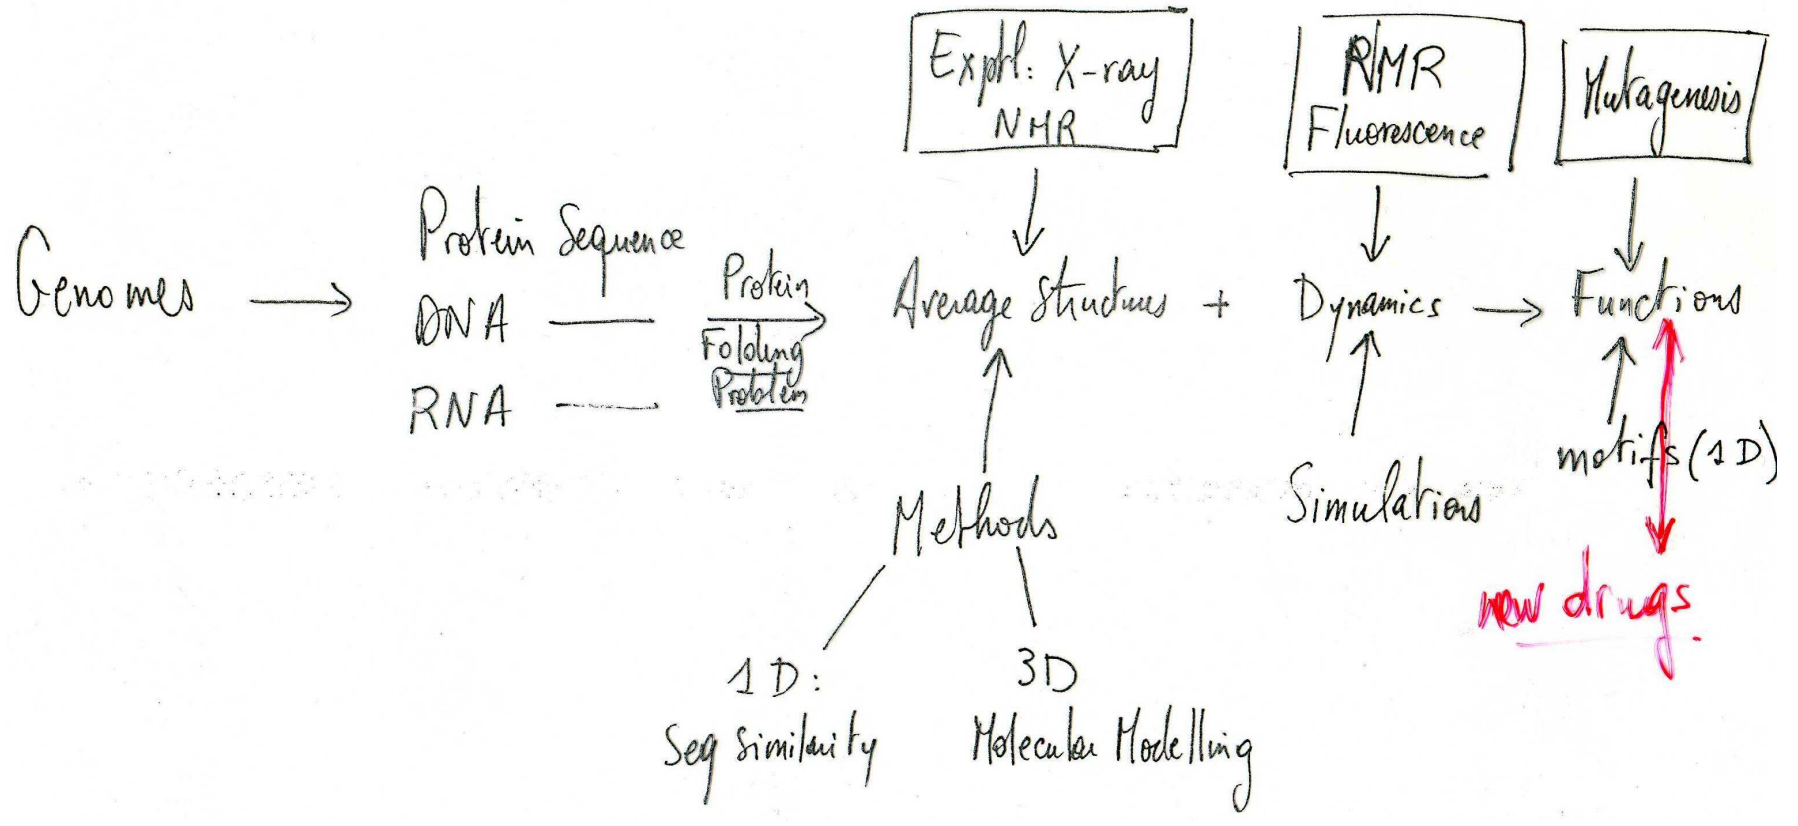 Exptl: X-ray
NMR
NMR
Fluorescence
Mutagenesis
Genomes
Protein Sequence
DNA
RNA
Protein
Folding
Problem
Average Structures + Dynamics Functions
Methods
Simulations
motifs (1D)
new drugs.
1D:
Seq Similarity
3D
Molecular Modelling